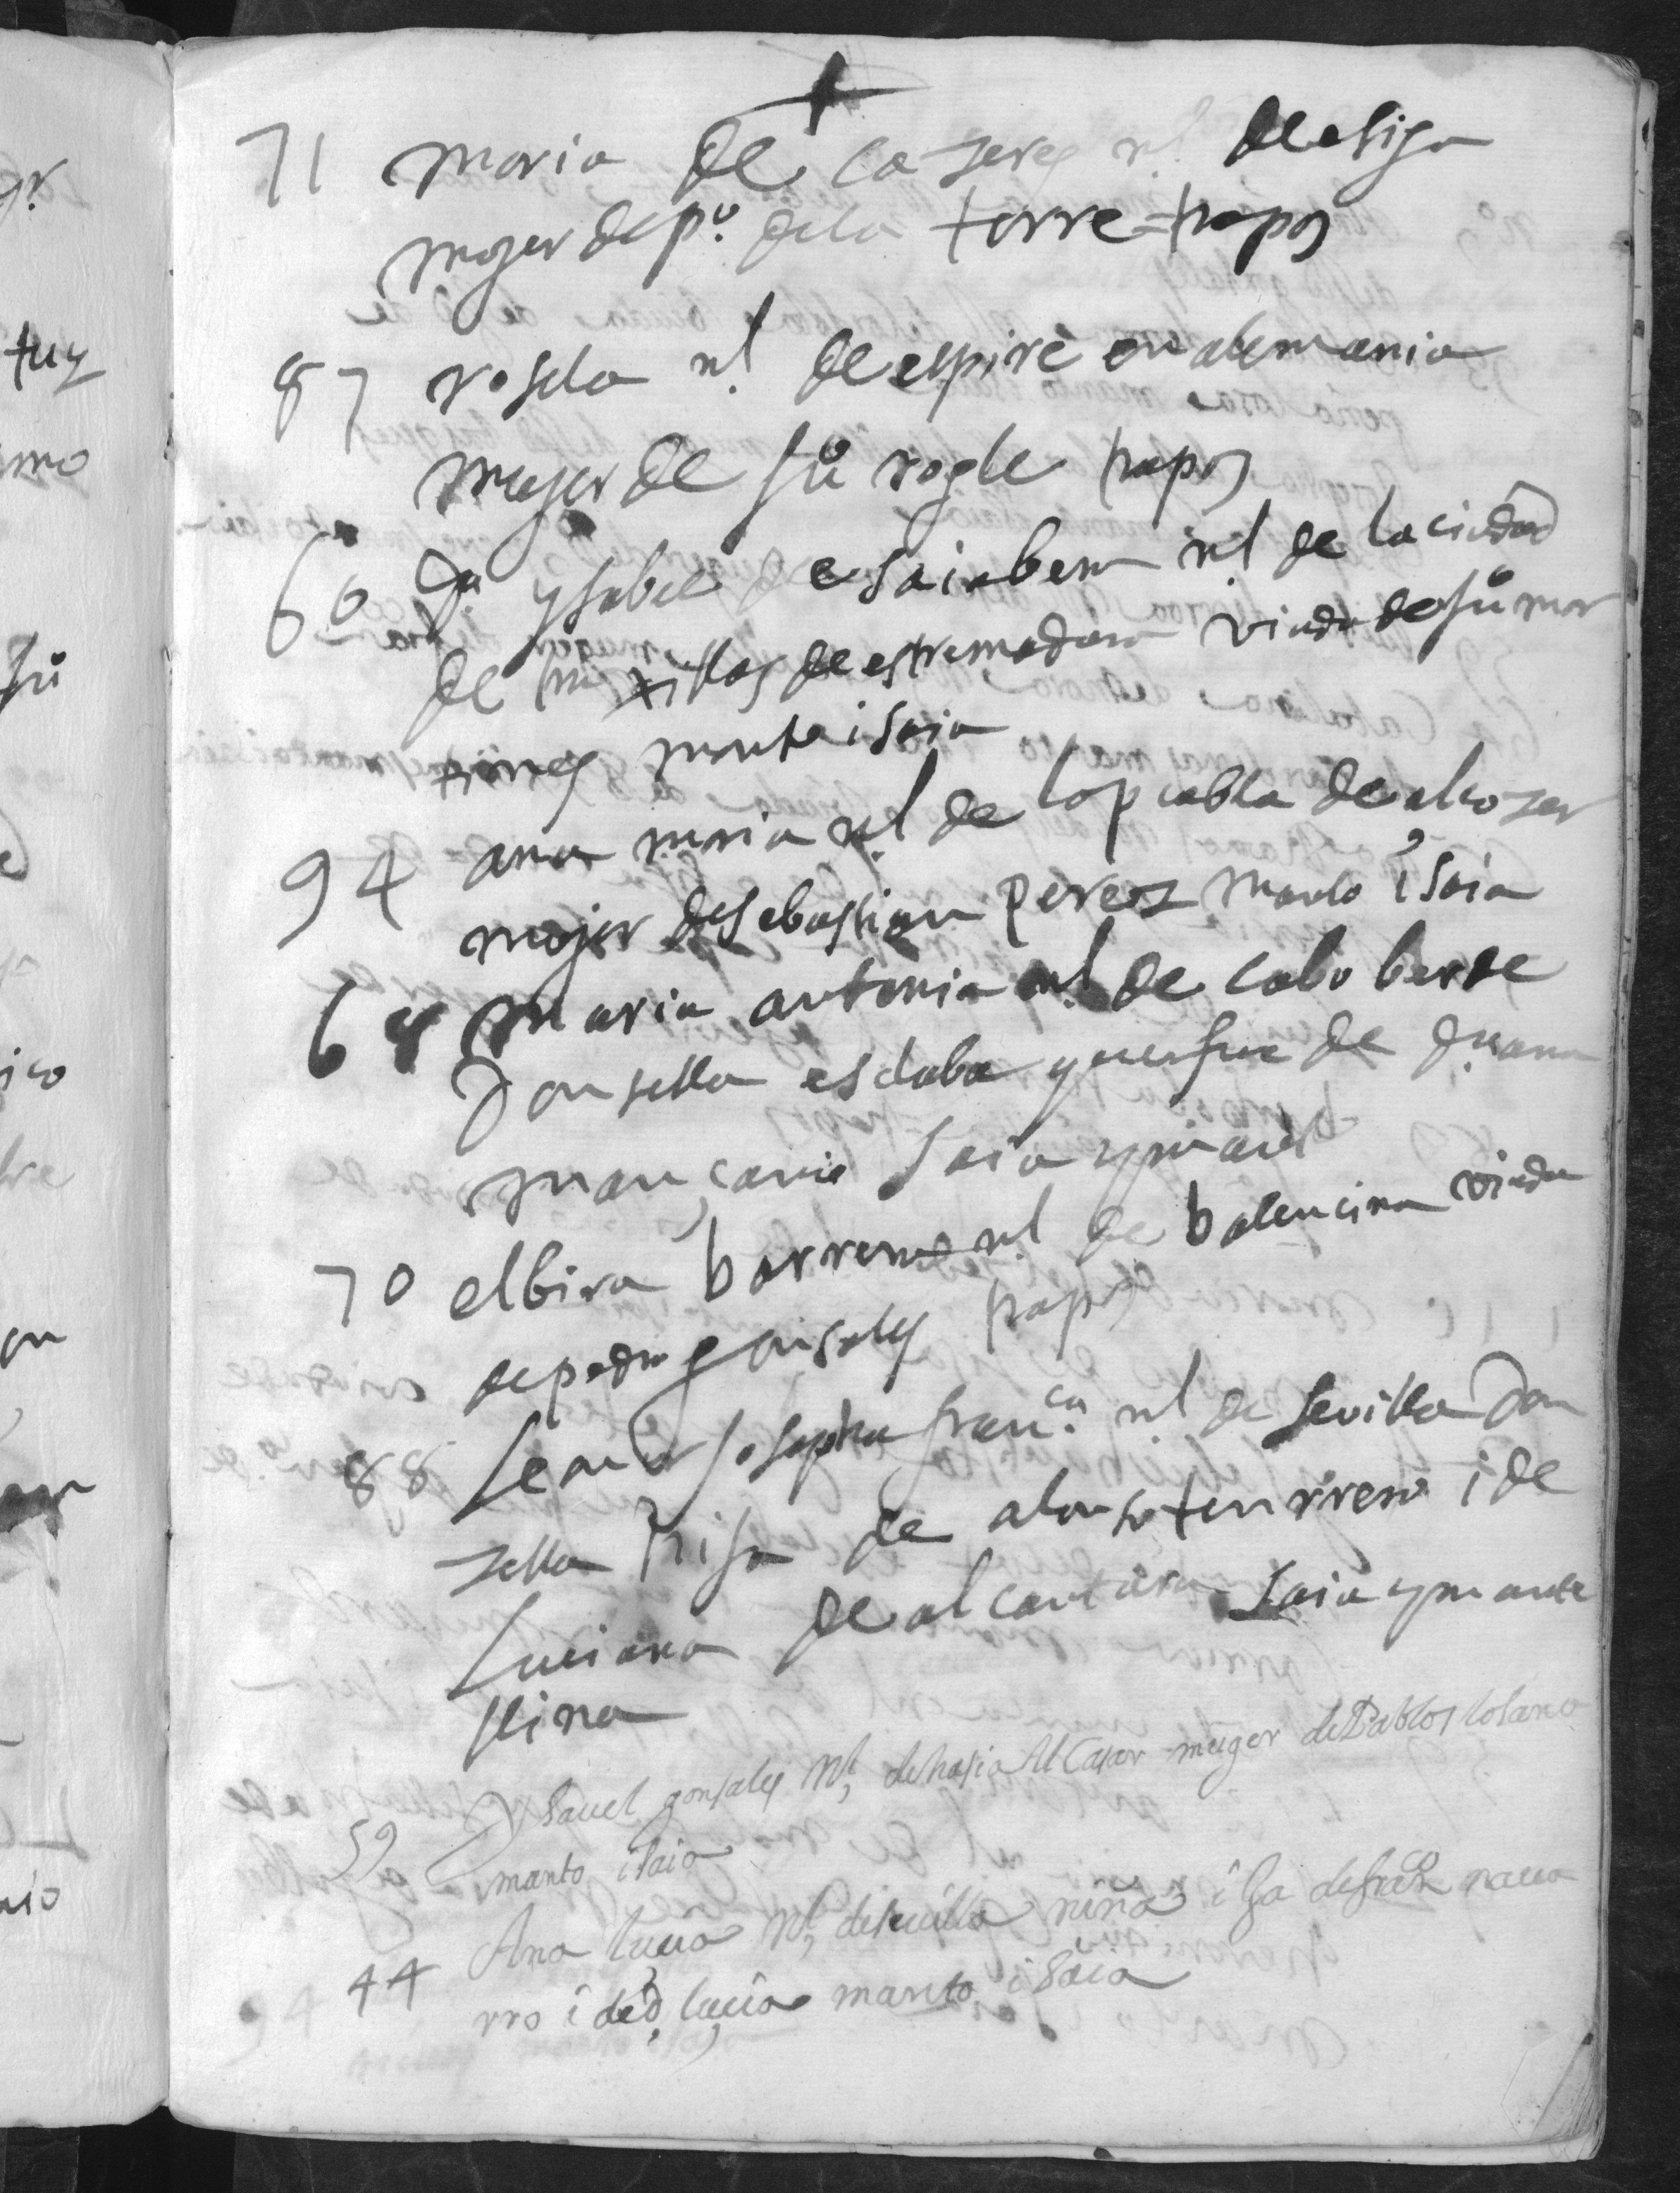 71 maria de caseres nl. de esija
mujer de po. de la torre = trapos
87 rosela nl. de espire en alemania
mujer de Juo rogle trapos
60 Da ysabel de saiabem nl. de la ciudad
de truxillos de estremadura viuda de Juo mar
tines manto i saia
94 ana maria nl. de la puebla de alcozer
mujer de sebastian peres manto i saia
68 maria antonia nl. de cabo berde
donsella esclaba que fue de Da. ana
mançano saia y manto
70 elbira barrera nl. de balencina viuda
de pedro gonsales trapos
88 leonor josepha franca. nl. de sevilla don
zella hija de alonso tenrrero i de
luciana de alcantara saia y mante
llina
59 Ysavel gonsales Nl, de hasia Al Casar muger de Pablos losano
manto i saia
44 Ana lucia Nl, de seuilla niña i ja de nava
rro i de lucia manto i saia